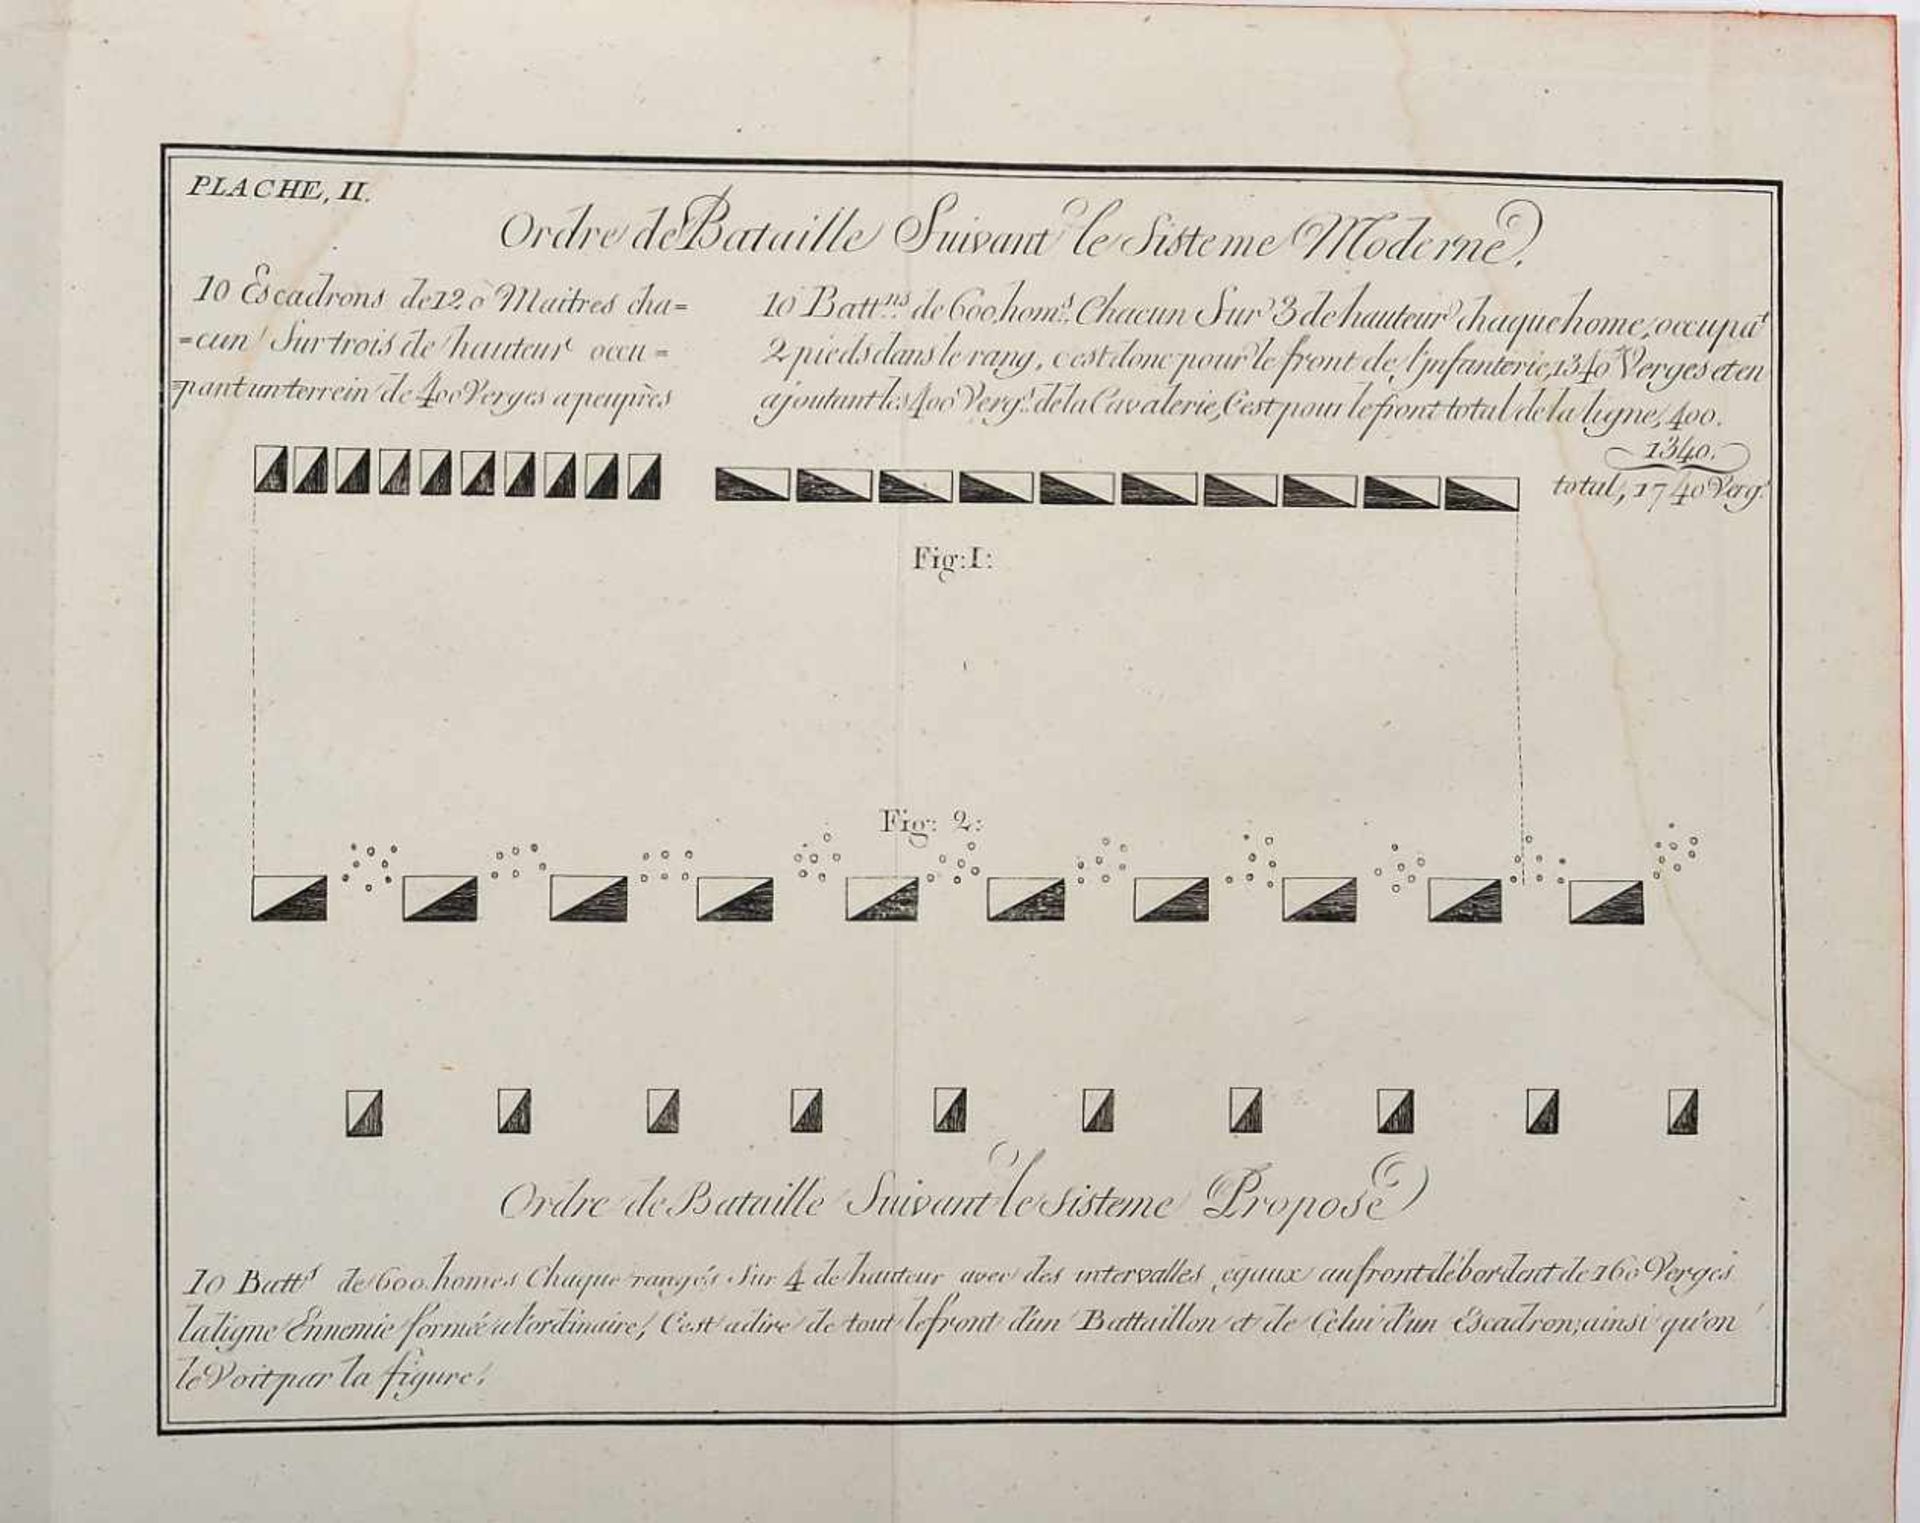 PLACHE, II.
Ordre de Bataille Suivant le Sisteme Moderne.
10 Escadrons de 120 Maitres cha=
=cun Sur trois de hauteur occu=
=pant un terrein de 400 Verges a peu près
10 Batt.ns de 600 hom.s Chacun Sur 3 de hauteur chaque home, occupat
2 pieds dans le rang, c'est donc pour le front de l'jnfanterie, 1340 Verges et en
ajoutant les 400 Verg.s de la Cavalerie, C'est pour le front total de la ligne, 400.
1340.
total, 1740 Verg.s
Fig: I:
Fig: 2:
Ordre de Bataille Suivant le Sisteme Proposé
10 Batt.s de 600 homes Chaque rangés Sur 4 de hauteur avec des intervalles égaux au front débordent de 160 Verges
la ligne Ennemie formée a lordinaire, C'est a dire de tout le front d'un Battaillon et de Celui d'un Escadron; ainsi qu'on
le Voit par la figure.